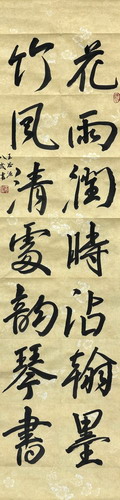 花雨潤時沾翰墨
竹風清處韻琴書